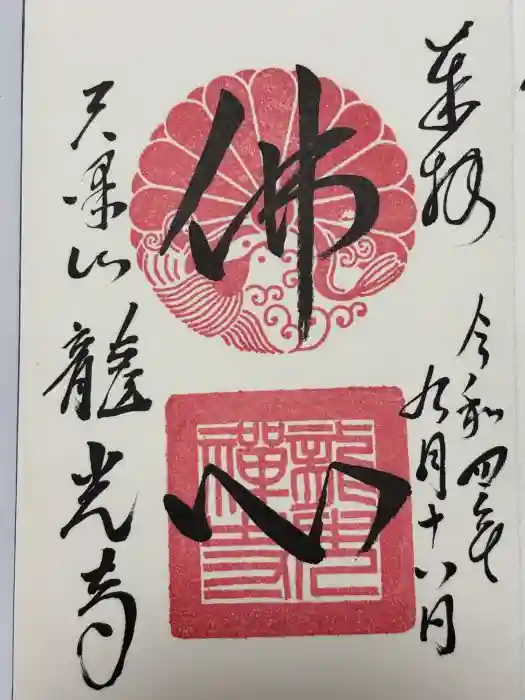 奉拝
令和四年
九月十八日
佛心
龍光
禪寺
天澤山
龍光寺